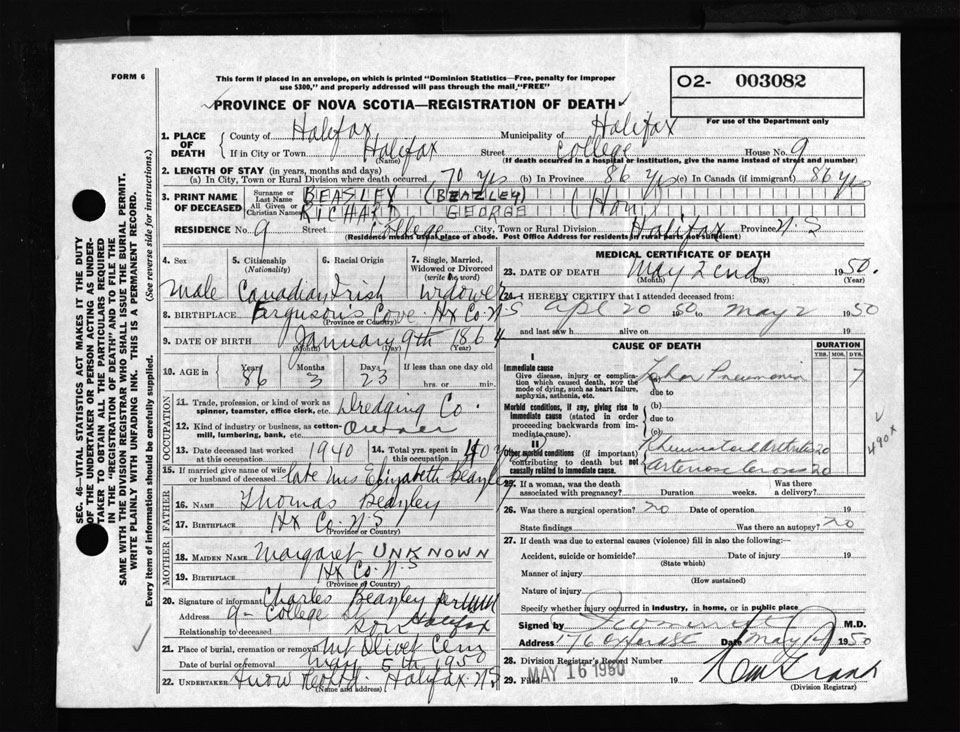 FORM 6
This form if placed in an envelope, on which is printed "Dominion Statistics—Free, penalty for improper
use $300," and properly addressed will pass through the mail "FREE"
O2- 003082
For use of the Department only
PROVINCE OF NOVA SCOTIA—REGISTRATION OF DEATH
1. PLACE OF DEATH
County of Halifax Municipality of Halifax
If in City or Town Halifax Street College House No. 9
(Name) (If death occurred in a hospital or institution, give the name instead of street and number)
2. LENGTH OF STAY (in years, months and days)
(a) In City, Town or Rural Division where death occurred 70 yrs (b) In Province 86 yrs (c) In Canada (if immigrant) 86 yrs
3. PRINT NAME OF DECEASED
Surname or Last Name BEASLEY (BEAZLEY)
All Given or Christian Names RICHARD GEORGE (Hon)
RESIDENCE No. 9 Street College City, Town or Rural Division Halifax Province N.S
(Residence means usual place of abode. Post Office Address for residents in rural parts not sufficient)
4. Sex
5. Citizenship (Nationality)
6. Racial Origin
7. Single, Married, Widowed or Divorced (write the word)
Male Canadian Irish Widower
8. BIRTHPLACE Ferguson's Cove Hx Co. N.S
(Province or Country)
9. DATE OF BIRTH January 9th 1864
(Month) (Day) (Year)
10. AGE in Years Months Days If less than one day old
86 3 23 hrs. or min.
OCCUPATION
11. Trade, profession, or kind of work as spinner, teamster, office clerk, etc. Dredging Co.
12. Kind of industry or business, as cotton-mill, lumbering, bank, etc. Owner
13. Date deceased last worked at this occupation 1940 14. Total yrs. spent in this occupation 40 yrs
15. If married give name of wife or husband of deceased late Mrs Elizabeth Beazley
FATHER
16. NAME Thomas Beazley
17. BIRTHPLACE Hx Co. N.S
(Province or Country)
MOTHER
18. MAIDEN NAME Margaret UNKNOWN
19. BIRTHPLACE Hx Co. N.S
(Province or Country)
20. Signature of informant Charles Beazley per
Address 9- College St Halifax
Relationship to deceased Son
21. Place of burial, cremation or removal Mt Olivet Cem
Date of burial or removal May 5th 1950
22. UNDERTAKER Snow Halifax N.S
(Name and address)
MEDICAL CERTIFICATE OF DEATH
23. DATE OF DEATH May 2nd 1950.
(Month) (Day) (Year)
24. I HEREBY CERTIFY that I attended deceased from
Apl 20 1950 to May 2 1950
and last saw h alive on 19
CAUSE OF DEATH
DURATION
YRS. MOS. DYS.
I
Immediate cause
Give disease, injury or complication which caused death, NOT the mode of dying, such as heart failure, asphyxia, asthenia, etc.
(a) Lobar Pneumonia 7
due to
Morbid conditions, if any, giving rise to immediate cause (stated in order proceeding backwards from immediate cause)
(b)
due to
(c)
II
Other morbid conditions (if important) contributing to death but not causally related to immediate cause.
Rheumatoid Arthritis 20
arteriosclerosis 20
490X
25. If a woman, was the death associated with pregnancy? Duration weeks. Was there a delivery?
26. Was there a surgical operation? No Date of operation 19
State findings Was there an autopsy? No
27. If death was due to external causes (violence) fill in also the following:
Accident, suicide or homicide? Date of injury 19
(State which)
Manner of injury
(How sustained)
Nature of injury
Specify whether injury occurred in industry, in home, or in public place
Signed by M.D.
Address 176 Oxford St Date May 1950
28. Division Registrar's Record Number
29. Filed MAY 16 1950 19
(Division Registrar)
SEC. 46—VITAL STATISTICS ACT MAKES IT THE DUTY
OF THE UNDERTAKER OR PERSON ACTING AS UNDERTAKER
TO OBTAIN ALL THE PARTICULARS REQUIRED
IN THE "REGISTRATION OF DEATH" AND TO FILE THE
SAME WITH THE DIVISION REGISTRAR WHO SHALL ISSUE THE BURIAL PERMIT.
WRITE PLAINLY WITH UNFADING INK. THIS IS A PERMANENT RECORD.
Every item of information should be carefully supplied. (See reverse side for instructions.)